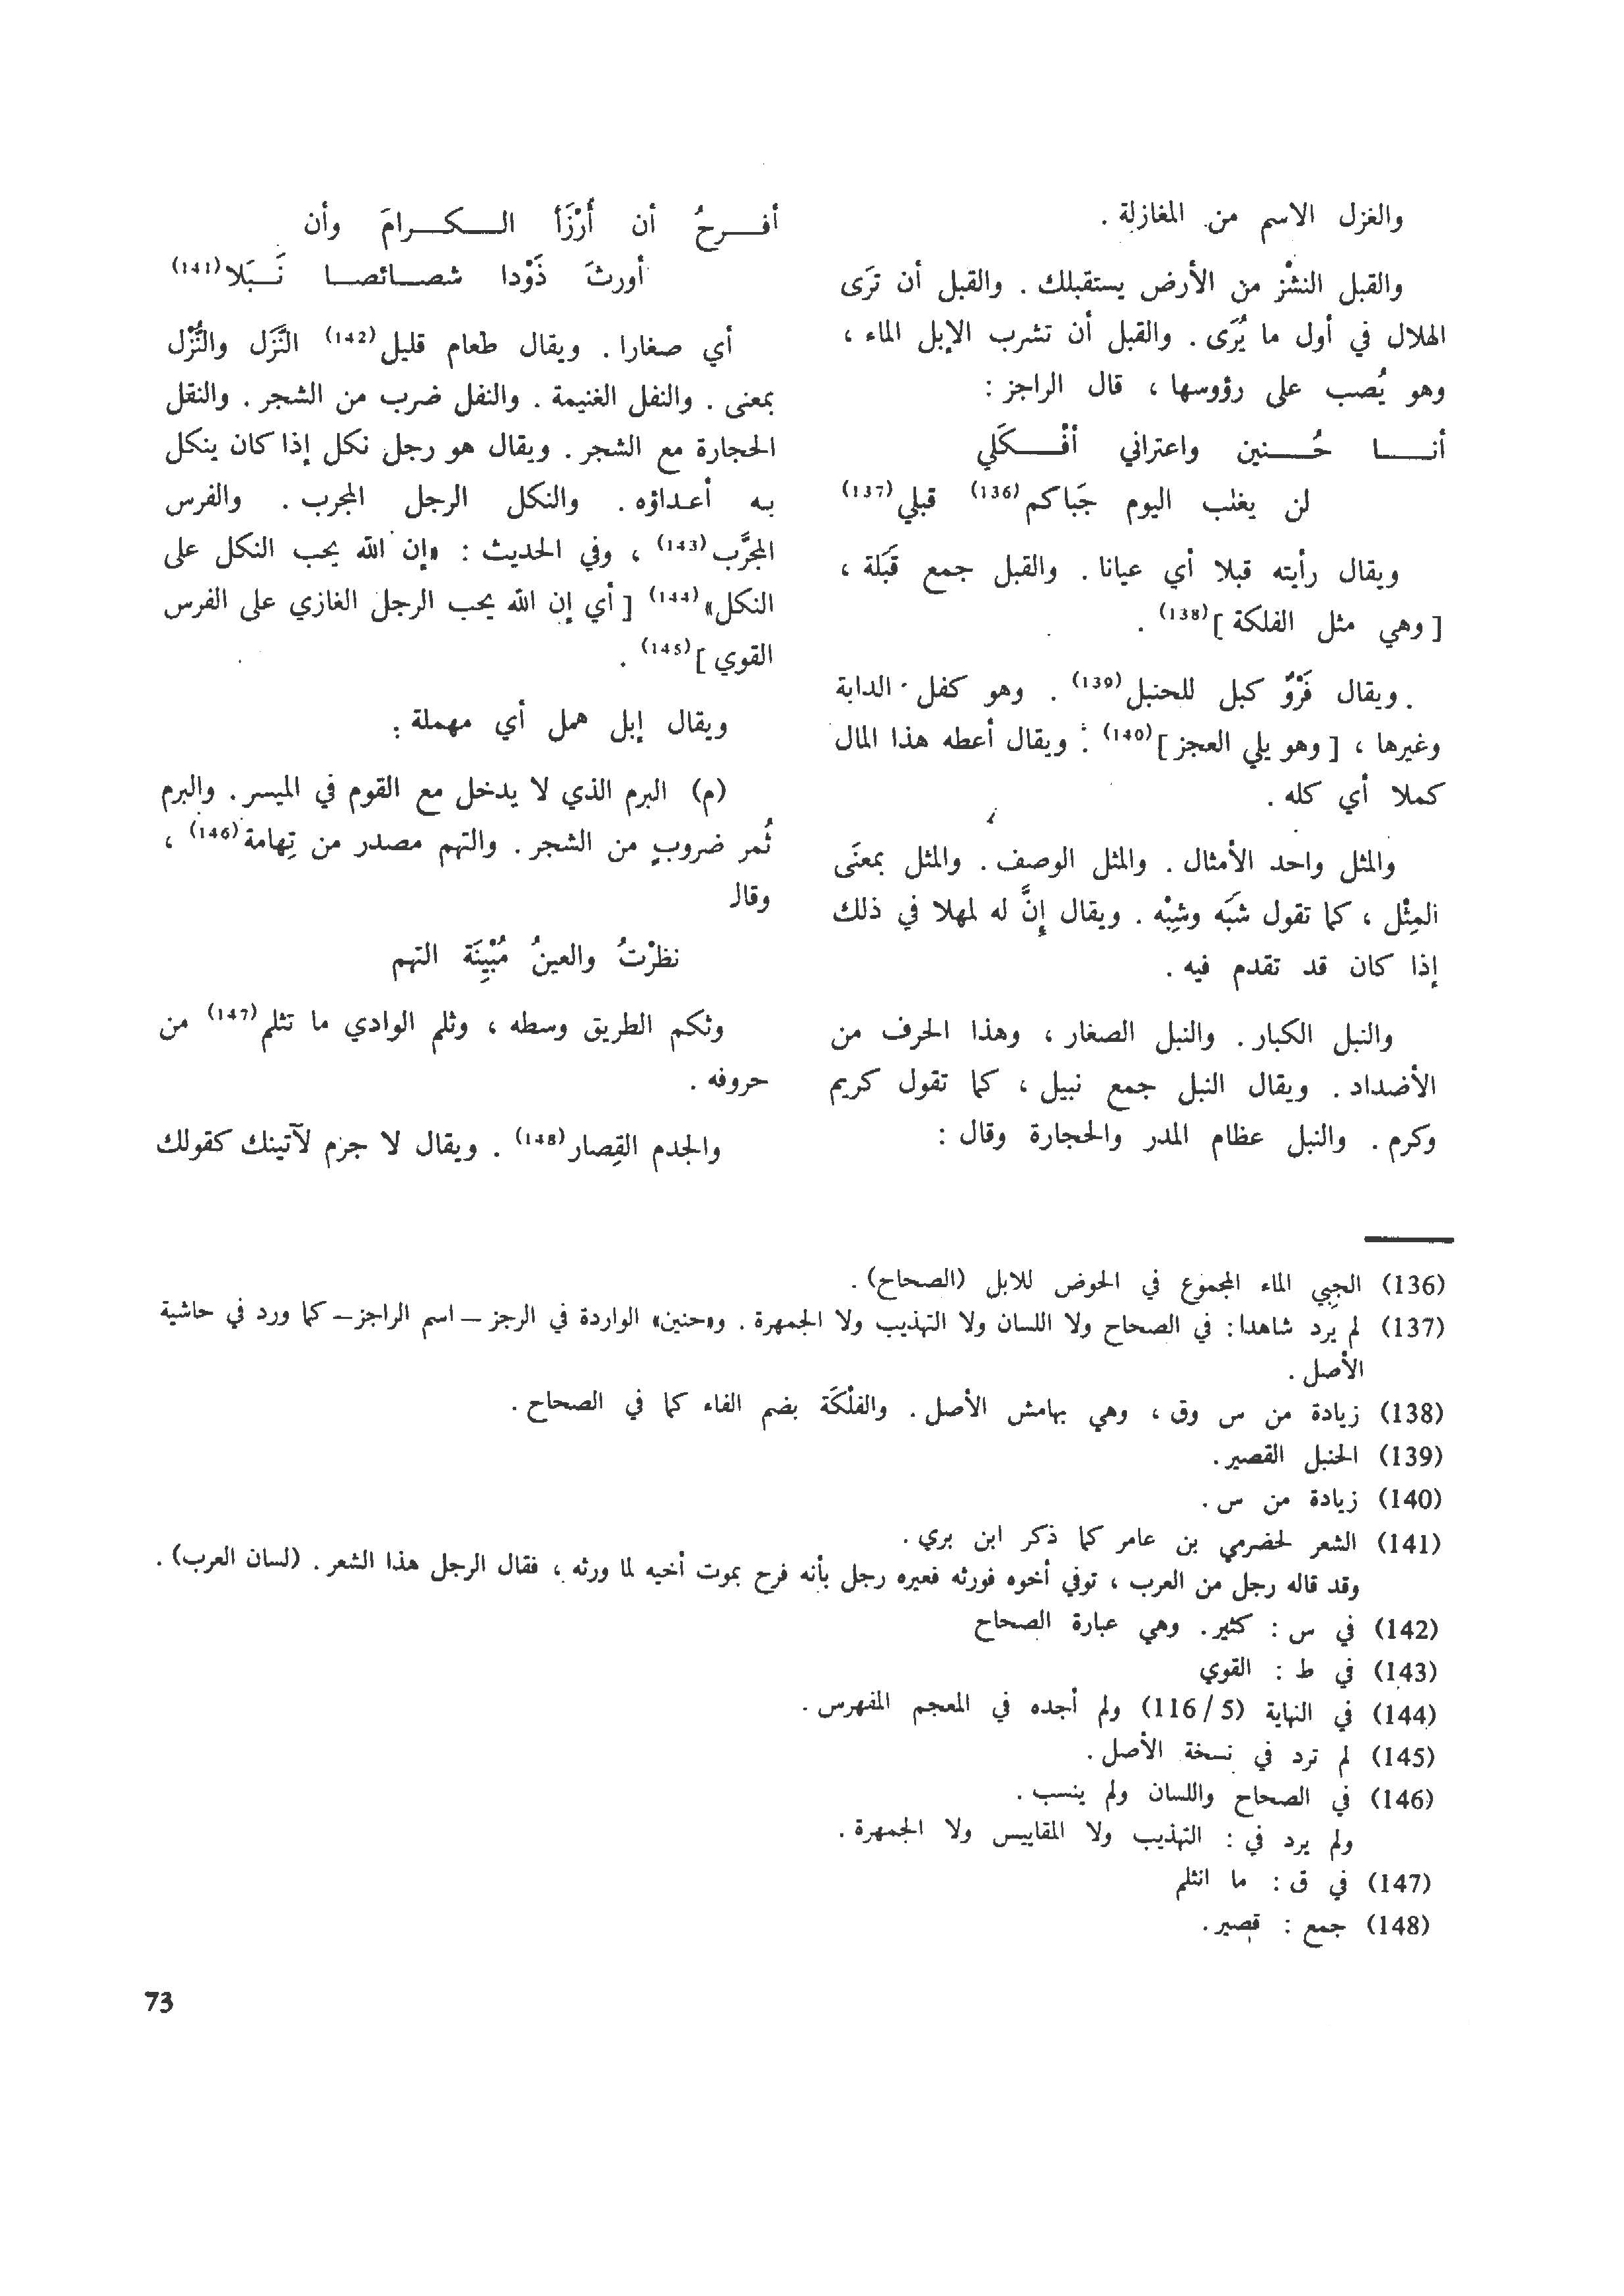 والغزل الاسم من المغازلة .
والقبل النشْز من الأرض يستقبلك . والقبل أن ترَى
الهلال في أول ما يُرَى . والقبل أن تشرب الإبل الماء ،
وهو يُصب على رؤوسها ، قال الراجز :
أنـــا حُـــنين واعتراني أفْـــكَلي
لن يغلب اليوم جَباكم(136) قبلي(137)
ويقال رأيته قبلا أي عيانا . والقبل جمع قَبَلة ،
[ وهي مثل الفلكة ](138) .
ويقال فَرْوٌ كبل للحنبل(139) . وهو كفل الدابة
وغيرها ، [ وهو يلي العجز ](140) . ويقال أعطه هذا المال
كملا أي كله .
والمثل واحد الأمثال . والمثل الوصف . والمثل بمعنَى
المِثْل ، كما تقول شبَه وشِبْه . ويقال إنَّ له لمهلا في ذلك
إذا كان قد تقدم فيه .
والنبل الكبار . والنبل الصغار ، وهذا الحرف من
الأضداد . ويقال النبل جمع نبيل ، كما تقول كريم
وكرم . والنبل عظام المدر والحجارة وقال :
أفـــرحُ أن أُرْزَأ الـــكـــرامَ وأن
أورثَ ذَوْدا شصـــائصـــا نَـــبَلا(141)
أي صغارا . ويقال طعام قليل(142) النَّزَل والنُّزْل
بمعنى . والنفل الغنيمة . والنفل ضرب من الشجر . والنقل
الحجارة مع الشجر . ويقال هو رجل نكل إذا كان ينكل
به أعداؤه . والنكل الرجل المجرب . والفرس
المجرَّب(143) ، وفي الحديث : «إن الله يحب النكل على
النكل»(144) [ أي إن الله يحب الرجل الغازي على الفرس
القوي ](145) .
ويقال إبل همل أي مهملة .
(م) البرم الذي لا يدخل مع القوم في الميسر . والبرم
ثُمر ضروبٍ من الشجر . والتهم مصدر من تِهامة(146) ،
وقال
نظرْتُ والعينُ مُبْيِنَة التهم
وثكم الطريق وسطه ، وثلم الوادي ما تثلم(147) من
حروفه .
والجدم القِصار(148) . ويقال لا جزم لآتينك كقولك
(136) الجِبي الماء المجموع في الحوض للابل (الصحاح) .
(137) لم يرد شاهدا : في الصحاح ولا اللسان ولا التهذيب ولا الجمهرة . و«حنين» الواردة في الرجز – اسم الراجز – كما ورد في حاشية
الأصل .
(138) زيادة من س وق ، وهي بهامش الأصل . والفلْكَة بضم الفاء كما في الصحاح .
(139) الحنبل القصير .
(140) زيادة من س .
(141) الشعر لحضرمي بن عامر كما ذكر ابن بري .
وقد قاله رجل من العرب ، توفي أخوه فورثه فعيره رجل بأنه فرح بموت أخيه لما ورثه ، فقال الرجل هذا الشعر . (لسان العرب) .
(142) في س : كثير . وهي عبارة الصحاح
(143) في ط : القوي
(144) في النهاية (5/116) ولم أجده في المعجم المفهرس .
(145) لم ترد في نسخة الأصل .
(146) في الصحاح واللسان ولم ينسب .
ولم يرد في : التهذيب ولا المقاييس ولا الجمهرة .
(147) في ق : ما انثلم
(148) جمع : قصير .
73